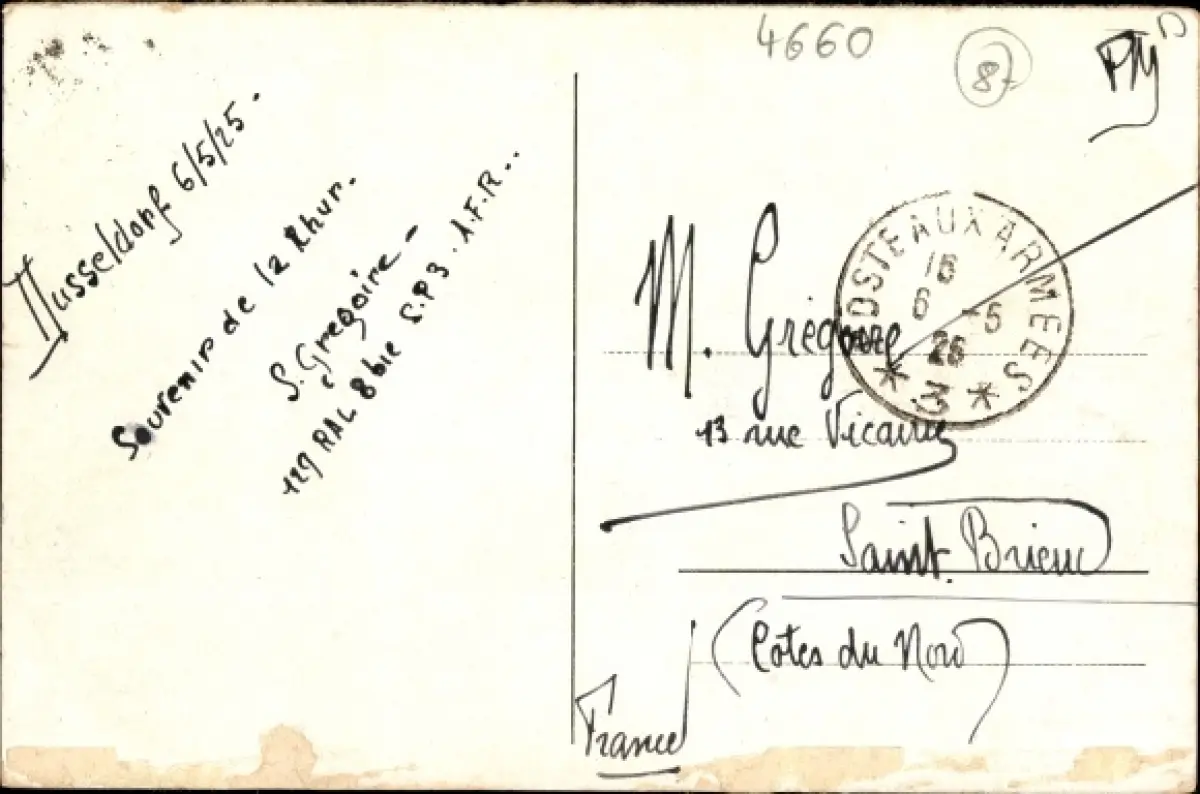 Dusseldorf 6/5/25.
Souvenir de la Rhur.
S. Grégoire -
129 RAL 8 bie S.P 3. A.F.R..
4660
8-
FM
POSTE AUX ARMEES
15
6 -5
25
* 3 *
M. Grégoire
13 rue Vicairie
Saint. Brieuc
(Côtes du Nord)
France